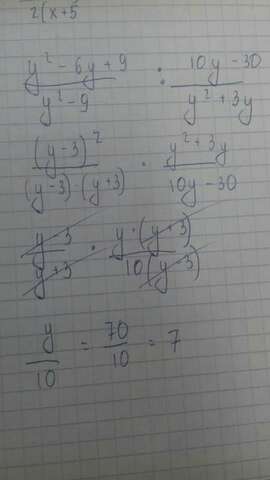 2(x+5
y² - 6y + 9 / y² - 9 : 10y - 30 / y² + 3y
(y-3)² / (y-3)·(y+3) · y² + 3y / 10y - 30
y-3 / y+3 · y·(y+3) / 10(y-3)
y / 10 = 70 / 10 = 7